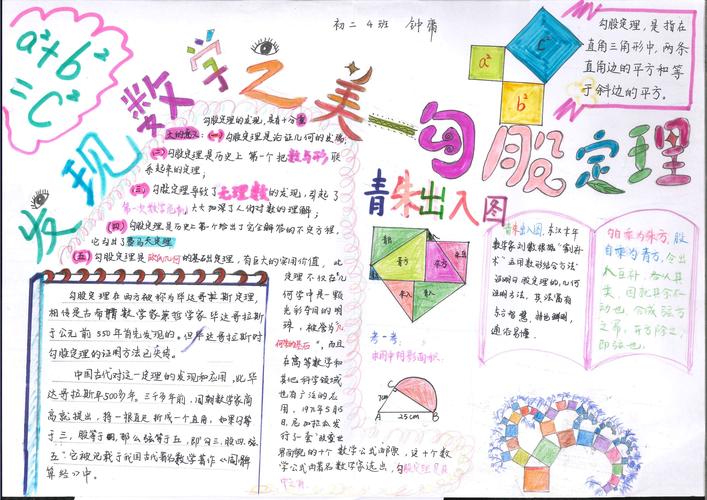 初二4班 钟
a²+b²
=c²
发现数学之美——勾股定理
a²
c²
b²
勾股定理，是指在
直角三角形中，两条
直角边的平方和等
于斜边的平方。
勾股定理的发现，具有十分重
大的意义：(一)勾股定理是论证几何的发端；
(二)勾股定理是历史上第一个把数与形联
系起来的定理；
(三)勾股定理导致了无理数的发现，引起了
第一次数学危机，大大加深了人们对数的理解；
(四)勾股定理是历史上第一个给出了完全解答的不定方程，
它引出了费马大定理
(五)勾股定理是欧氏几何的基础定理，有巨大的实用价值。此
定理不仅在几
何学中是一颗
光彩夺目的明
珠，被誉为“几
何学的基石”，而且
在高等数学和
其他科学领域
也有广泛的应
用。1971年5月15
日，尼加拉瓜发
行了一套
的十个数学公式邮票，这十个数
学公式由著名数学家选出，勾股定理是
勾股定理在西方被称为毕达哥拉斯定理，
相传是古希腊数学家兼哲学家毕达哥拉斯
于公元前550年首先发现的。但毕达哥拉斯对
勾股定理的证明方法已失传。
中国古代对这一定理的发现和应用，比毕
达哥拉斯早500多年。三千多年前，周朝数学家商
高就提出，将一根直尺折成一个直角，如果勾等
于三，股等于四，那么弦等于五，即勾三、股四、弦
五。它被记载于我国古代著名数学著作《周髀
算经》中。
青朱出入图
青出
青方
朱方
朱入
青入
考一考：
求图中阴影面积。
C
7cm
A
25cm
B
青朱出入图，东汉末年
数学家刘徽根据“割补
术”运用数形结合方法
证明勾股定理的几何
证明方法，其法富有
巧智慧，特色鲜明，
通俗易懂。
勾自乘为朱方，股
自乘为青方，令出
入互补，各从其
类，因就其余不
动也，合成弦方
之幂，开方除之，
即弦也。